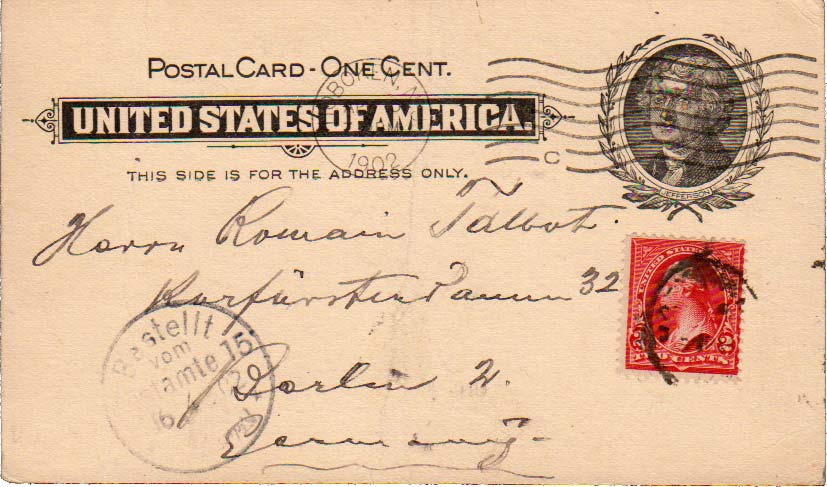 POSTAL CARD - ONE CENT.
UNITED STATES OF AMERICA.
BOKEN, N
1902
C
THIS SIDE IS FOR THE ADDRESS ONLY.
JEFFERSON
Herrn Romain Talbot.
Kurfürstendamm 32
UNITED STATES
2 2
TWO CENTS
Bestellt
vom
stamte 15
Berlin W.
Germany